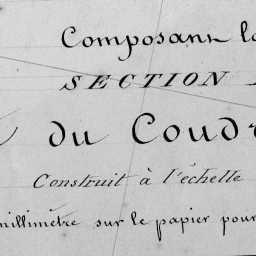 Composant l
SECTION
du Coud
Construit à l'échelle
millimètre sur le papier pour